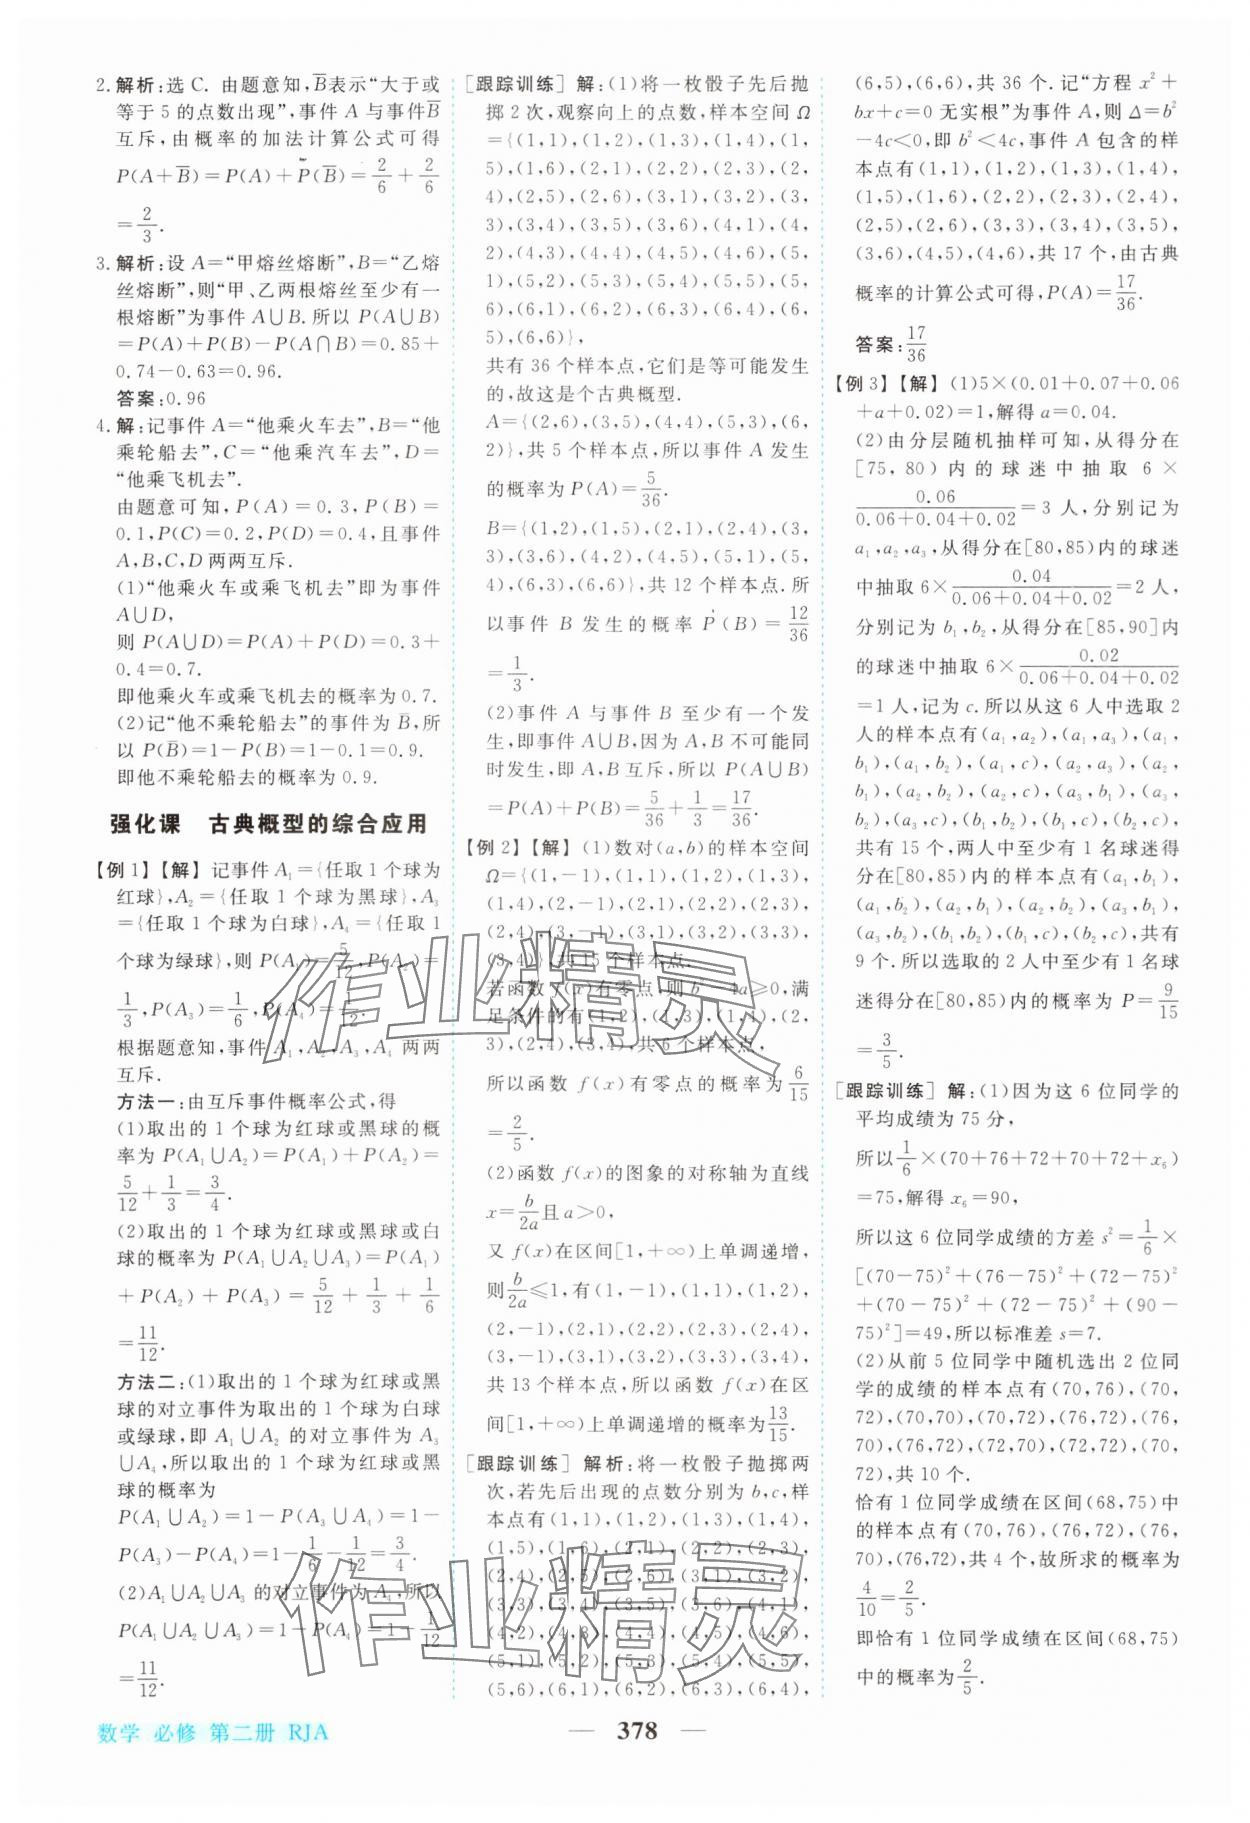 2. 解析:选 C. 由题意知,B̅表示“大于或
等于 5 的点数出现”,事件 A 与事件B̅
互斥,由概率的加法计算公式可得
P(A+B̅)=P(A)+P(B̅)=2/6+2/6
=2/3.
3. 解析:设 A=“甲熔丝熔断”,B=“乙熔
丝熔断”,则“甲、乙两根熔丝至少有一
根熔断”为事件 A∪B.所以 P(A∪B)
=P(A)+P(B)-P(A∩B)=0.85+
0.74-0.63=0.96.
答案:0.96
4. 解:记事件 A=“他乘火车去”,B=“他
乘轮船去”,C=“他乘汽车去”,D=
“他乘飞机去”.
由题意可知,P(A)=0.3,P(B)=
0.1,P(C)=0.2,P(D)=0.4,且事件
A,B,C,D 两两互斥.
(1)“他乘火车或乘飞机去”即为事件
A∪D,
则 P(A∪D)=P(A)+P(D)=0.3+
0.4=0.7.
即他乘火车或乘飞机去的概率为 0.7.
(2)记“他不乘轮船去”的事件为 B̅,所
以 P(B̅)=1-P(B)=1-0.1=0.9.
即他不乘轮船去的概率为 0.9.
强化课 古典概型的综合应用
【例 1】【解】 记事件 A₁={任取 1 个球为
红球},A₂={任取 1 个球为黑球},A₃
={任取 1 个球为白球},A₄={任取 1
个球为绿球},则 P(A₁)=5/12,P(A₂)=
1/3,P(A₃)=1/6,P(A₄)=1/12.
根据题意知,事件 A₁,A₂,A₃,A₄ 两两
互斥.
方法一:由互斥事件概率公式,得
(1)取出的 1 个球为红球或黑球的概
率为 P(A₁∪A₂)=P(A₁)+P(A₂)=
5/12+1/3=3/4.
(2)取出的 1 个球为红球或黑球或白
球的概率为 P(A₁∪A₂∪A₃)=P(A₁)
+P(A₂)+P(A₃)=5/12+1/3+1/6
=11/12.
方法二:(1)取出的 1 个球为红球或黑
球的对立事件为取出的 1 个球为白球
或绿球,即 A₁∪A₂ 的对立事件为 A₃
∪A₄,所以取出的 1 个球为红球或黑
球的概率为
P(A₁∪A₂)=1-P(A₃∪A₄)=1-
P(A₃)-P(A₄)=1-1/6-1/12=3/4.
(2)A₁∪A₂∪A₃ 的对立事件为 A₄,所以
P(A₁∪A₂∪A₃)=1-P(A₄)=1-1/12
=11/12.
[跟踪训练] 解:(1)将一枚骰子先后抛
掷 2 次,观察向上的点数,样本空间 Ω
={(1,1),(1,2),(1,3),(1,4),(1,
5),(1,6),(2,1),(2,2),(2,3),(2,
4),(2,5),(2,6),(3,1),(3,2),(3,
3),(3,4),(3,5),(3,6),(4,1),(4,
2),(4,3),(4,4),(4,5),(4,6),(5,
1),(5,2),(5,3),(5,4),(5,5),(5,
6),(6,1),(6,2),(6,3),(6,4),(6,
5),(6,6)},
共有 36 个样本点,它们是等可能发生
的,故这是个古典概型.
A={(2,6),(3,5),(4,4),(5,3),(6,
2)},共 5 个样本点,所以事件 A 发生
的概率为 P(A)=5/36.
B={(1,2),(1,5),(2,1),(2,4),(3,
3),(3,6),(4,2),(4,5),(5,1),(5,
4),(6,3),(6,6)},共 12 个样本点.所
以事件 B 发生的概率 P(B)=12/36
=1/3.
(2)事件 A 与事件 B 至少有一个发
生,即事件 A∪B,因为 A,B 不可能同
时发生,即 A,B 互斥,所以 P(A∪B)
=P(A)+P(B)=5/36+1/3=17/36.
【例 2】【解】 (1)数对(a,b)的样本空间
Ω={(1,-1),(1,1),(1,2),(1,3),
(1,4),(2,-1),(2,1),(2,2),(2,3),
(2,4),(3,-1),(3,1),(3,2),(3,3),
(3,4)},共 15 个样本点.
若函数 f(x)有零点,则 b²-4a≥0,满
足条件的有(1,2),(1,3),(1,4),(2,
3),(2,4),(3,4),共 6 个样本点,
所以函数 f(x)有零点的概率为 6/15
=2/5.
(2)函数 f(x)的图象的对称轴为直线
x=b/2a且 a>0,
又 f(x)在区间[1,+∞)上单调递增,
则b/2a≤1,有(1,-1),(1,1),(1,2),
(2,-1),(2,1),(2,2),(2,3),(2,4),
(3,-1),(3,1),(3,2),(3,3),(3,4),
共 13 个样本点,所以函数 f(x)在区
间[1,+∞)上单调递增的概率为13/15.
[跟踪训练] 解析:将一枚骰子抛掷两
次,若先后出现的点数分别为 b,c,样
本点有(1,1),(1,2),(1,3),(1,4),
(1,5),(1,6),(2,1),(2,2),(2,3),
(2,4),(2,5),(2,6),(3,1),(3,2),
(3,3),(3,4),(3,5),(3,6),(4,1),
(4,2),(4,3),(4,4),(4,5),(4,6),
(5,1),(5,2),(5,3),(5,4),(5,5),
(5,6),(6,1),(6,2),(6,3),(6,4),
(6,5),(6,6),共 36 个.记“方程 x²+
bx+c=0 无实根”为事件 A,则 Δ=b²
-4c<0,即 b²<4c,事件 A 包含的样
本点有(1,1),(1,2),(1,3),(1,4),
(1,5),(1,6),(2,2),(2,3),(2,4),
(2,5),(2,6),(3,3),(3,4),(3,5),
(3,6),(4,5),(4,6),共 17 个,由古典
概率的计算公式可得,P(A)=17/36.
答案:17/36
【例 3】【解】 (1)5×(0.01+0.07+0.06
+a+0.02)=1,解得 a=0.04.
(2)由分层随机抽样可知,从得分在
[75,80)内的球迷中抽取 6×
0.06/(0.06+0.04+0.02)=3 人,分别记为
a₁,a₂,a₃,从得分在[80,85)内的球迷
中抽取 6×0.04/(0.06+0.04+0.02)=2 人,
分别记为 b₁,b₂,从得分在[85,90]内
的球迷中抽取 6×0.02/(0.06+0.04+0.02)
=1 人,记为 c.所以从这 6 人中选取 2
人的样本点有(a₁,a₂),(a₁,a₃),(a₁,
b₁),(a₁,b₂),(a₁,c),(a₂,a₃),(a₂,
b₁),(a₂,b₂),(a₂,c),(a₃,b₁),(a₃,
b₂),(a₃,c),(b₁,b₂),(b₁,c),(b₂,c),
共有 15 个,两人中至少有 1 名球迷得
分在[80,85)内的样本点有(a₁,b₁),
(a₁,b₂),(a₂,b₁),(a₂,b₂),(a₃,b₁),
(a₃,b₂),(b₁,b₂),(b₁,c),(b₂,c),共有
9 个.所以选取的 2 人中至少有 1 名球
迷得分在[80,85)内的概率为 P=9/15
=3/5.
[跟踪训练] 解:(1)因为这 6 位同学的
平均成绩为 75 分,
所以1/6×(70+76+72+70+72+x₆)
=75,解得 x₆=90,
所以这 6 位同学成绩的方差 s²=1/6×
[(70-75)²+(76-75)²+(72-75)²
+(70-75)²+(72-75)²+(90-
75)²]=49,所以标准差 s=7.
(2)从前 5 位同学中随机选出 2 位同
学的成绩的样本点有(70,76),(70,
72),(70,70),(70,72),(76,72),(76,
70),(76,72),(72,70),(72,72),(70,
72),共 10 个.
恰有 1 位同学成绩在区间(68,75)中
的样本点有(70,76),(76,72),(76,
70),(76,72),共 4 个,故所求的概率为
4/10=2/5.
即恰有 1 位同学成绩在区间(68,75)
中的概率为2/5.
作业精灵
作业精灵
数学 必修 第二册 RJA
— 378 —